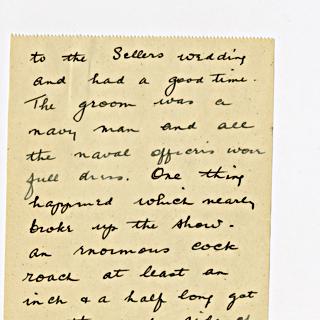 to the Sellers wedding
and had a good time.
The groom was a
navy man and all
the naval officers wore
full dress. One thing
happened which nearly
broke up the show.
an enormous cock
roach at least an
inch & a half long got